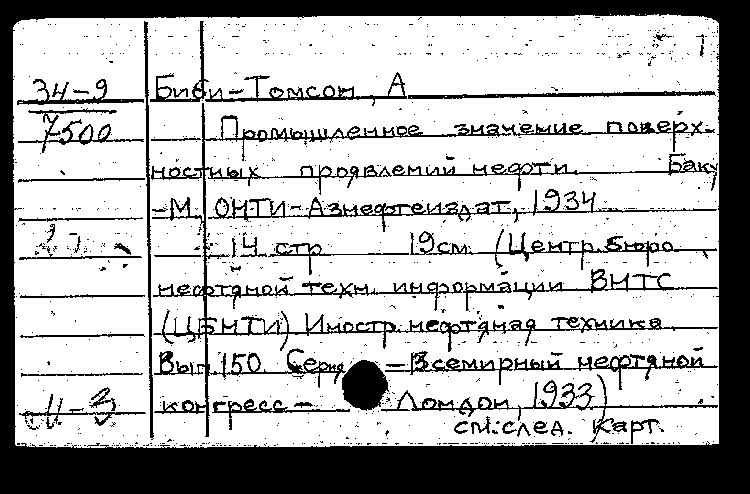 1
34-9 Биби-Томсон, А
7500 Промышленное значение поверх-
ностных проявлений нефти. Баку
-М, ОНТИ-Азнефтеиздат, 1934
14 стр 19см (Центр. бюро
нефтяной техн. информации ВНТС
(ЦБНТИ) Иностр. нефтяная техника.
Вып. 150 Серия -Всемирный нефтяной
М-3 конгресс- Лондон, 1933)
см. след. карт.